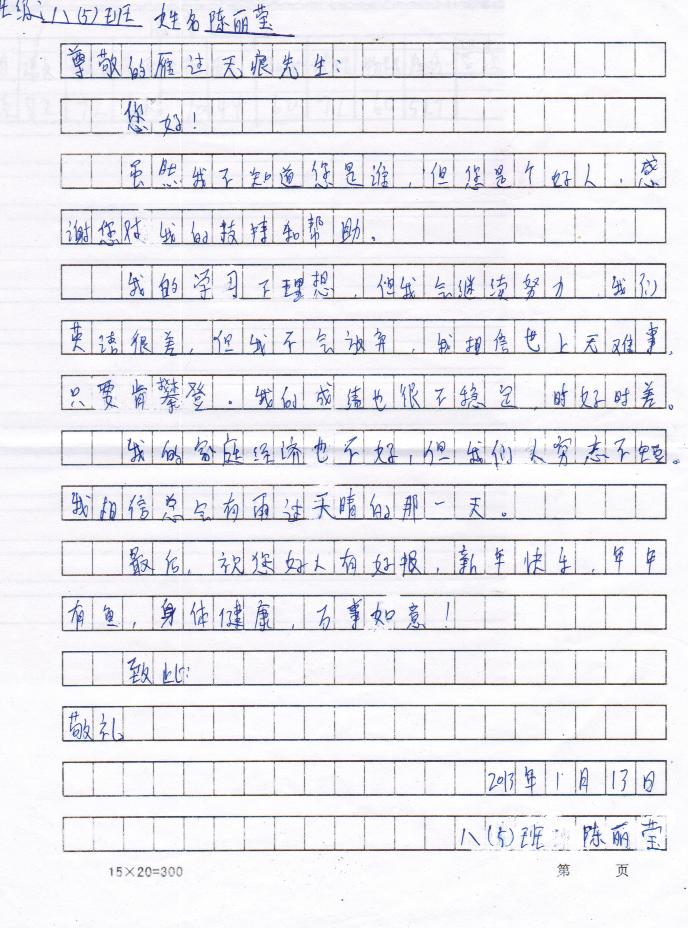 班级：八(5)班 姓名陈丽莹
尊敬的雁过无痕先生：
您好！
虽然我不知道您是谁，但您是个好人，感
谢您对我的支持和帮助。
我的学习不理想，但我会继续努力，我们
英语很差，但我不会放弃，我相信世上无难事，
只要肯攀登。我的成绩也很不稳定，时好时差。
我的家庭经济也不好，但我们人穷志不短。
我相信总会有雨过天晴的那一天。
最后，祝您好人有好报，新年快乐，年年
有鱼，身体健康，万事如意！
致此：
敬礼
2013年1月13日
八(5)班 陈丽莹
15×20=300 第 页